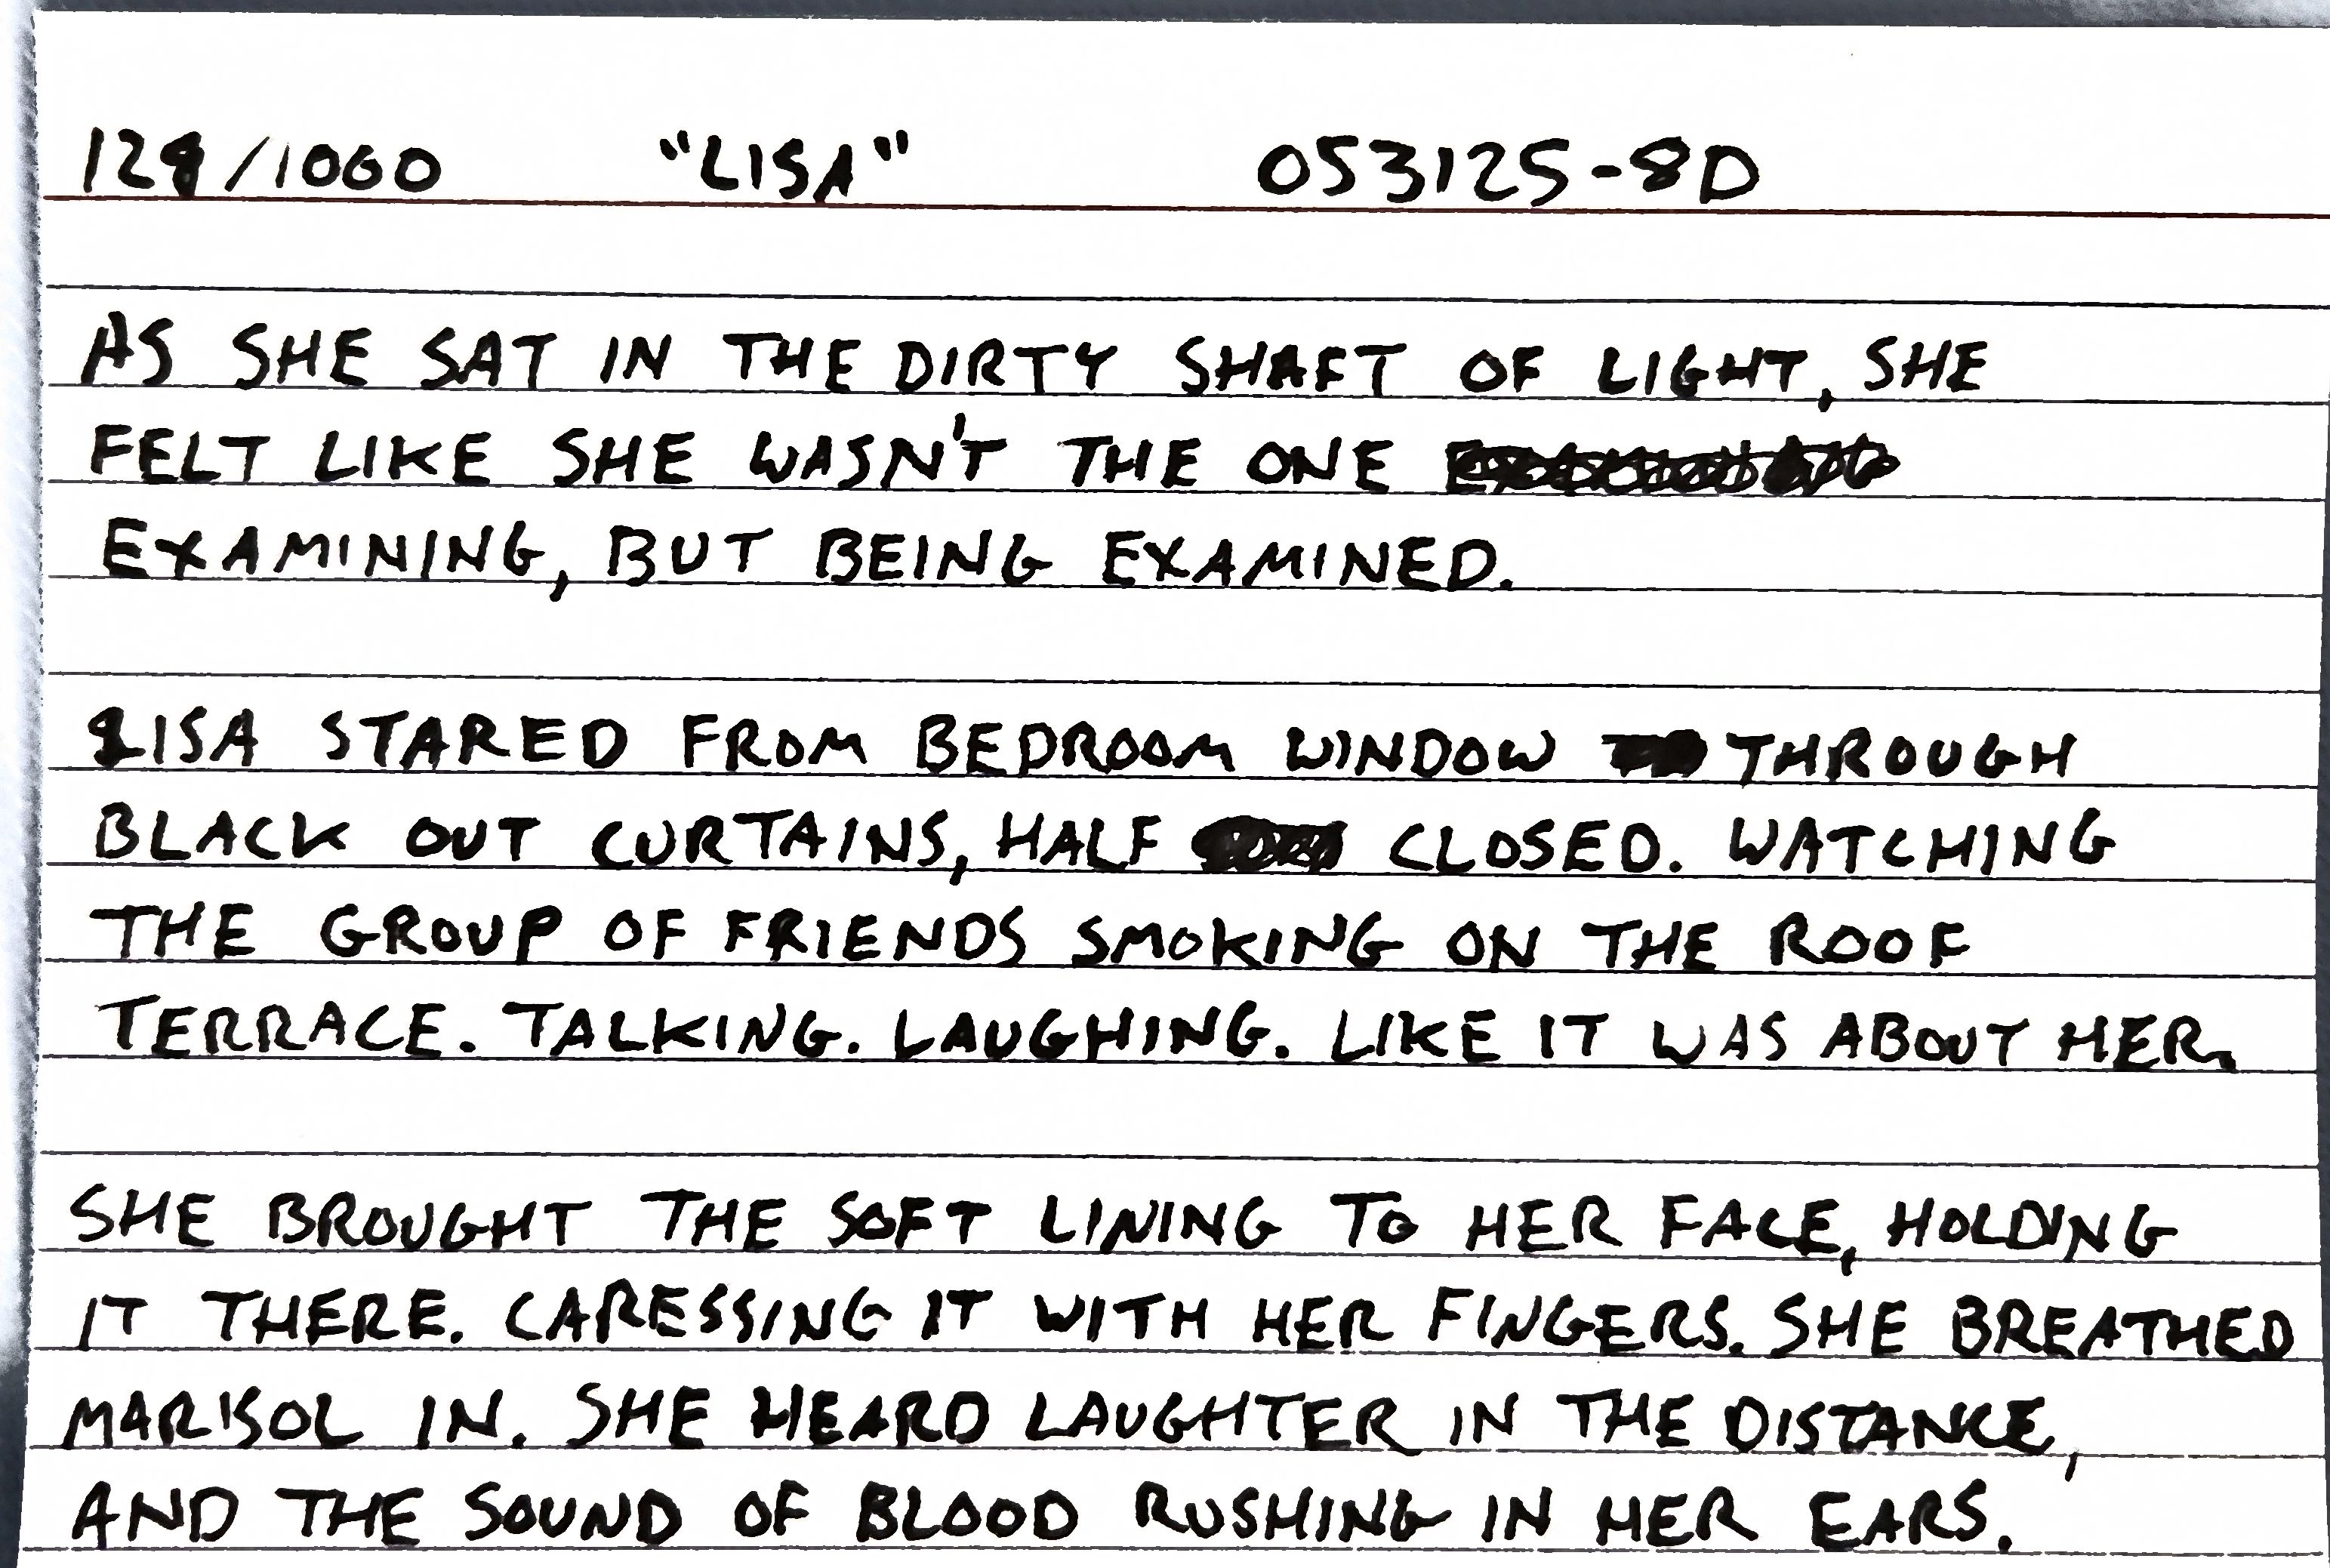 129/1000 "LISA" 053125-8D
AS SHE SAT IN THE DIRTY SHAFT OF LIGHT, SHE
FELT LIKE SHE WASN'T THE ONE
EXAMINING, BUT BEING EXAMINED.
LISA STARED FROM BEDROOM WINDOW THROUGH
BLACK OUT CURTAINS, HALF CLOSED. WATCHING
THE GROUP OF FRIENDS SMOKING ON THE ROOF
TERRACE. TALKING. LAUGHING. LIKE IT WAS ABOUT HER.
SHE BROUGHT THE SOFT LINING TO HER FACE, HOLDING
IT THERE. CARESSING IT WITH HER FINGERS. SHE BREATHED
MARISOL IN. SHE HEARD LAUGHTER IN THE DISTANCE,
AND THE SOUND OF BLOOD RUSHING IN HER EARS.